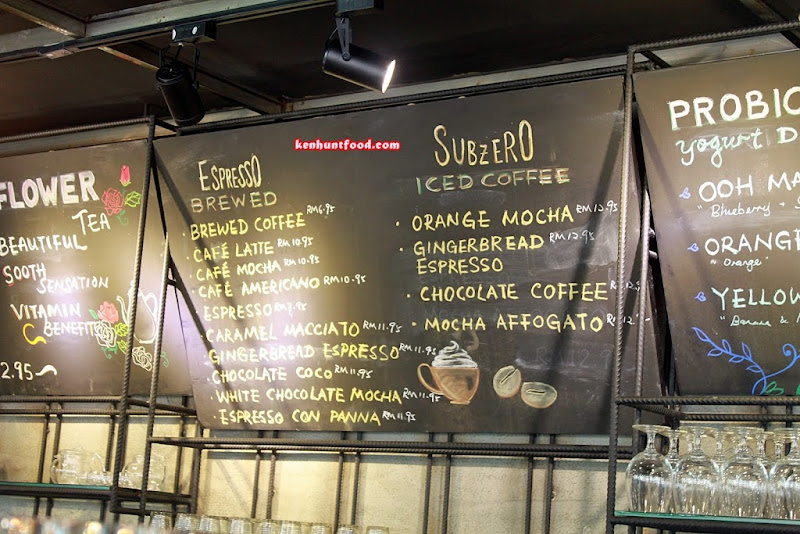 FLOWER
TEA
BEAUTIFUL
SOOTH
SENSATION
VITAMIN
BENEFITS
2.95
kenhuntfood.com
ESPRESSO
BREWED
BREWED COFFEE RM6.95
CAFÉ LATTE RM10.95
CAFÉ MOCHA RM10.95
CAFÉ AMERICANO RM10.95
ESPRESSO RM7.95
CARAMEL MACCIATO RM11.95
GINGERBREAD ESPRESSO RM11.95
CHOCOLATE COCO RM11.95
WHITE CHOCOLATE MOCHA RM11.95
ESPRESSO CON PANNA RM11.95
SUBZERO
ICED COFFEE
ORANGE MOCHA RM12.95
GINGERBREAD RM12.95
ESPRESSO
CHOCOLATE COFFEE RM12.9
MOCHA AFFOGATO RM12
PROBIO
yogurt D
OOH MA
"Blueberry +
ORANGE
"Orange"
YELLOW
"Banana &